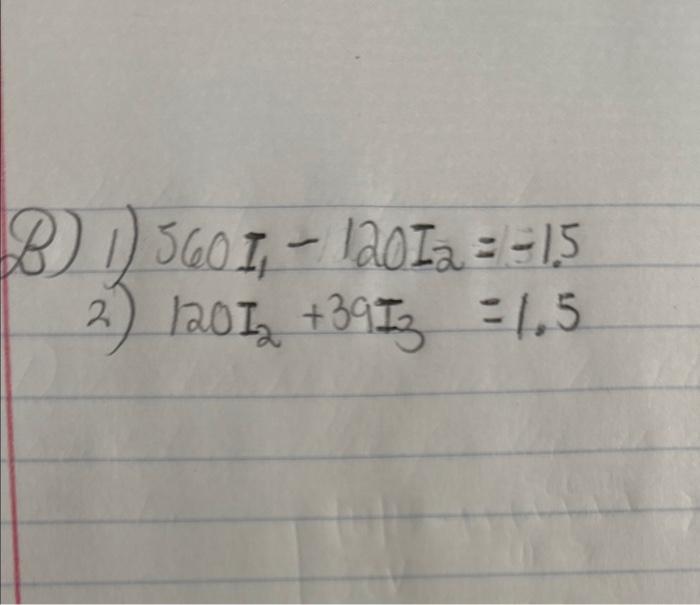 B) 1) 560I₁ - 120I₂ = -1.5
2) 120I₂ + 39I₃ = 1.5